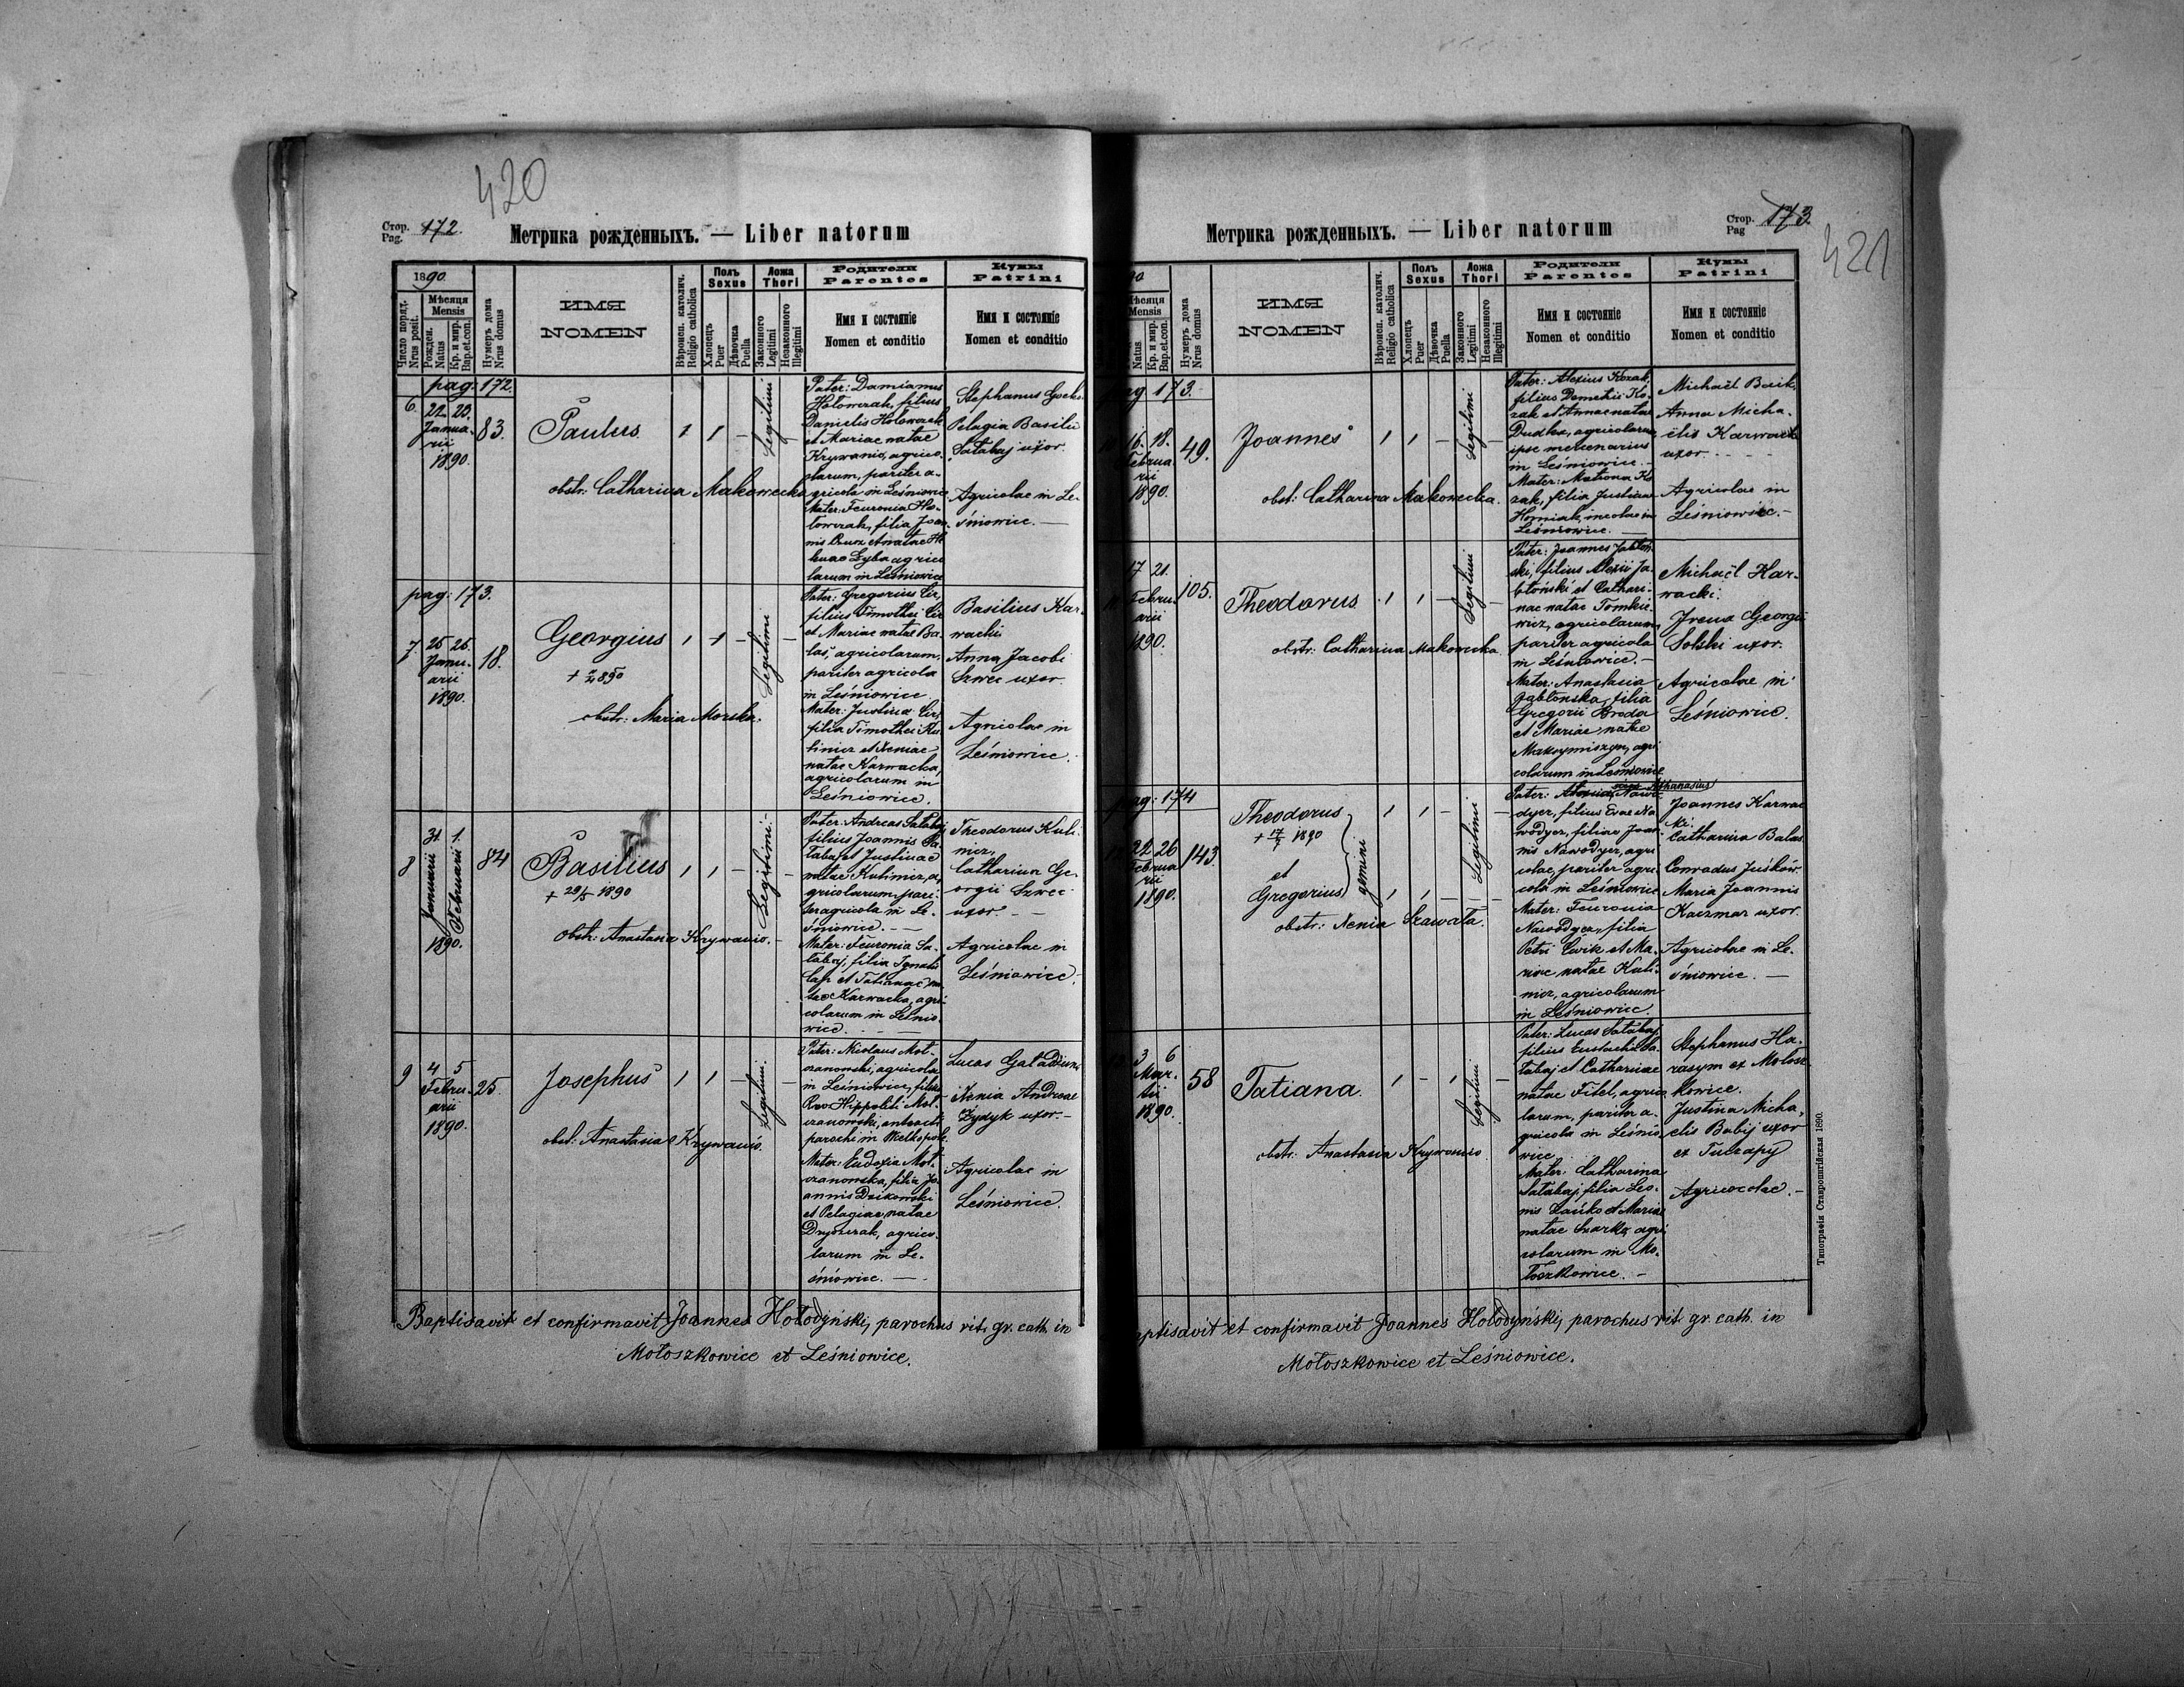 420
Стор. Pag. 172.
Метрика рожденныхъ. — Liber natorum
1890
Число поряд. Nrus posit.
Мѣсяця Mensis
Рожден. Natus
Кр. и мир. Bap.et.con.
Нумеръ дома Nrus domus
ИМЯ
NOMEN
Вѣроисп. католич. Religio catholica
Полъ Sexus
Хлопецъ Puer
Дѣвочка Puella
Ложа Thori
Законного Legitimi
Незаконного Illegitimi
Родители Parentes
Имя и состоянiе
Nomen et conditio
Кумы Patrini
Имя и состоянiе
Nomen et conditio
pag: 172.
6. 22. 23. Januarii 1890. 83.
Paulus
1 1 – Legitimi –
obstr: Catharina Makowecka
Pater: Damianus
Hołowczak, filius
Danielis Hołowczak
et Mariae natae
Krywanio, agrico-
larum, pariter a-
gricola in Leśniowice
Mater: Feuronia Ho-
łowczak, filia Joan-
nis et natae He-
lenae Dyba agrico
larum in Leśniowice
Stephanus
Pelagia Basilii
Satabaj uxor.
Agricolae in Le-
śniowice. —
pag: 173.
7. 25 25. Januarii 1890. 18.
Georgius
+ 1890
1 1 – Legitimi –
obstr: Maria Morska.
Pater: Gregorius Cir,
filius Timothei Cir
et Mariae natae Ba-
las, agricolarum,
pariter agricola
in Leśniowice.
Mater: Justina Cir,
filia Timothei Ku-
linicz et Xeniae
natae Karwacka,
agricolarum in
Leśniowice.
Basilius Kar-
wacki
Anna Jacobi
Szwec uxor.
Agricolae in
Leśniowice.
8 31 Januarii 1. Februarii 1890. 84
Basilius
+ 29/5 1890
1 1 – Legitimi. –
Obstr: Anastasia Krywanio. –
Pater: Andreas Satabaj
filius Joannis Sa-
tabaj et Justinae
natae Kulinicz, a-
gricolarum, pari-
ter agricola in Le-
śniowice. —
Mater: Feuronia Sa-
tabaj, filia Ignatii
Cap et Tatianae na-
tae Karwacka, agri-
colarum in Leśnio-
wice. —
Theodorus Kuli-
nicz,
Catharina Ge-
orgii Szwec
uxor. —
Agricolae in
Leśniowice.
9 4 5 Februarii 1890. 25.
Josephus
1 1 – Legitimi. –
obst: Anastasia Krywanio.
Pater: Nicolaus Moł-
czanowski, agricola
in Leśniowice, filius
Rev. Hippoliti Moł-
czanowski,
parochi in Wełkopole.
Mater: Eudoxia Moł-
czanowska, filia Jo-
annis Dzikowski
et Pelagiae, natae
agrico-
larum in Le-
śniowice. —
Lucas
Xenia Andreae
Żydyk uxor. –
Agricolae in
Leśniowice.
Baptisavit et confirmavit Joannes Hołodyński, parochus rit. gr. cath. in
Mołoszkowice et Leśniowice.
Метрика рожденныхъ. — Liber natorum
Стор. Pag 173.
421
90
Мѣсяця Mensis
Natus
Кр. и мир. Bap.et.con.
Нумеръ дома Nrus domus
ИМЯ
NOMEN
Вѣроисп. католич. Religio catholica
Полъ Sexus
Хлопецъ Puer
Дѣвочка Puella
Ложа Thori
Законного Legitimi
Незаконного Illegitimi
Родители Parentes
Имя и состоянiе
Nomen et conditio
Кумы Patrini
Имя и состоянiе
Nomen et conditio
pag 173.
16. 18. Februarii 1890. 49.
Joannes
1 1 – Legitimi –
obst: Catharina Makowecka.
Pater: Alexius Kozak,
filius Demetrii Ko-
zak et Annae natae
Dudka, agricolarum,
ipse mercenarius
in Leśniowice. –
Mater: Matrona Ko-
zak, filia Justinae
Homiak, incolae in
Leśniowice. —
Michaël Bacik,
Anna Micha-
ëlis Karwacki
uxor. –
Agricolae in
Leśniowice. –
17 21. Februarii 1890. 105.
Theodorus
1 1 – Legitimi –
obstr: Catharina Makowecka
Pater: Joannes Jabłoń-
ski, filius Alexii Ja-
błoński et Cathari-
nae natae Tomkie-
wicz, agricolarum,
pariter agricola
in Leśniowice. –
Mater: Anastasia
Jabłonska, filia
Gregorii Broda
et Mariae natae
Maksymiszyn, agri
colarum in Leśniowice
Michaël Kar-
wacki.
Irena Georgii
Solski uxor.
Agricolae in
Leśniowice.
pag: 174
22 26 Februarii 1890. 143.
Theodorus
+ 1890
et
Gregorius
gemini
1 1 – Legitimi –
1 1 –
obstr: Xenia Szawała.
Athanasius
Pater: Alexius Nawo
dyer, filius Evae Na
wodyer, filiae Joan
nis Nawodyer, agri
colae, pariter agri
cola in Leśniowice
Mater: Feuronia
Nawodyer, filia
Petri Cwik et Ma-
riae natae Kuli-
nicz, agricolarum
in Leśniowice.
Joannes Karwac
ki.
Catharina Balas
Conradus Juśków.
Maria Joannis
Kaczmar uxor.
Agricolae in Le-
śniowice. —
3 6 Martii 1890. 58
Tatiana.
1 – 1 Legitimi –
obstr: Anastasia Krywanio.
Pater: Lucas Satabaj,
filius Eustachii Sa-
tabaj et Catharinae
natae Fitel, agrico
larum, pariter a-
gricola in Leśnio
wice.
Mater: Catharina
Satabaj, filia Leo-
nis et Mariae
natae agri
colarum in Mo-
łoszkowice. –
Stephanus Ha-
rasym ex Mołosz
kowice.
Justina Micha-
elis Babij uxor
ex Tuczapy
Agricolae. –
Типографія Ставропигійская 1890.
ptisavit et confirmavit Joannes Hołodyński, parochus rit. gr. cath. in
Mołoszkowice et Leśniowice.